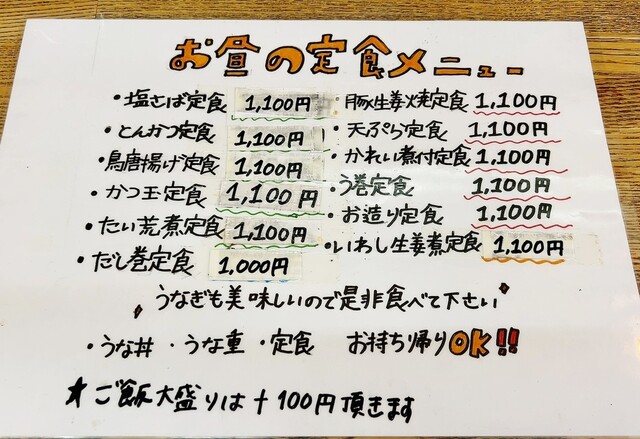 お昼の定食メニュー
・塩さば定食 1,100円
・とんかつ定食 1,100円
・鳥唐揚げ定食 1,100円
・かつ玉定食 1,100円
・たい荒煮定食 1,100円
・だし巻定食 1,000円
・豚生姜焼定食 1,100円
・天ぷら定食 1,100円
・かれい煮付定食 1,100円
・う巻定食 1,100円
・お造り定食 1,100円
・いわし生姜煮定食 1,100円
うなぎも美味しいので是非食べて下さい
・うな丼 ・うな重 ・定食 お持ち帰りOK!!
★ご飯大盛りは+100円頂きます